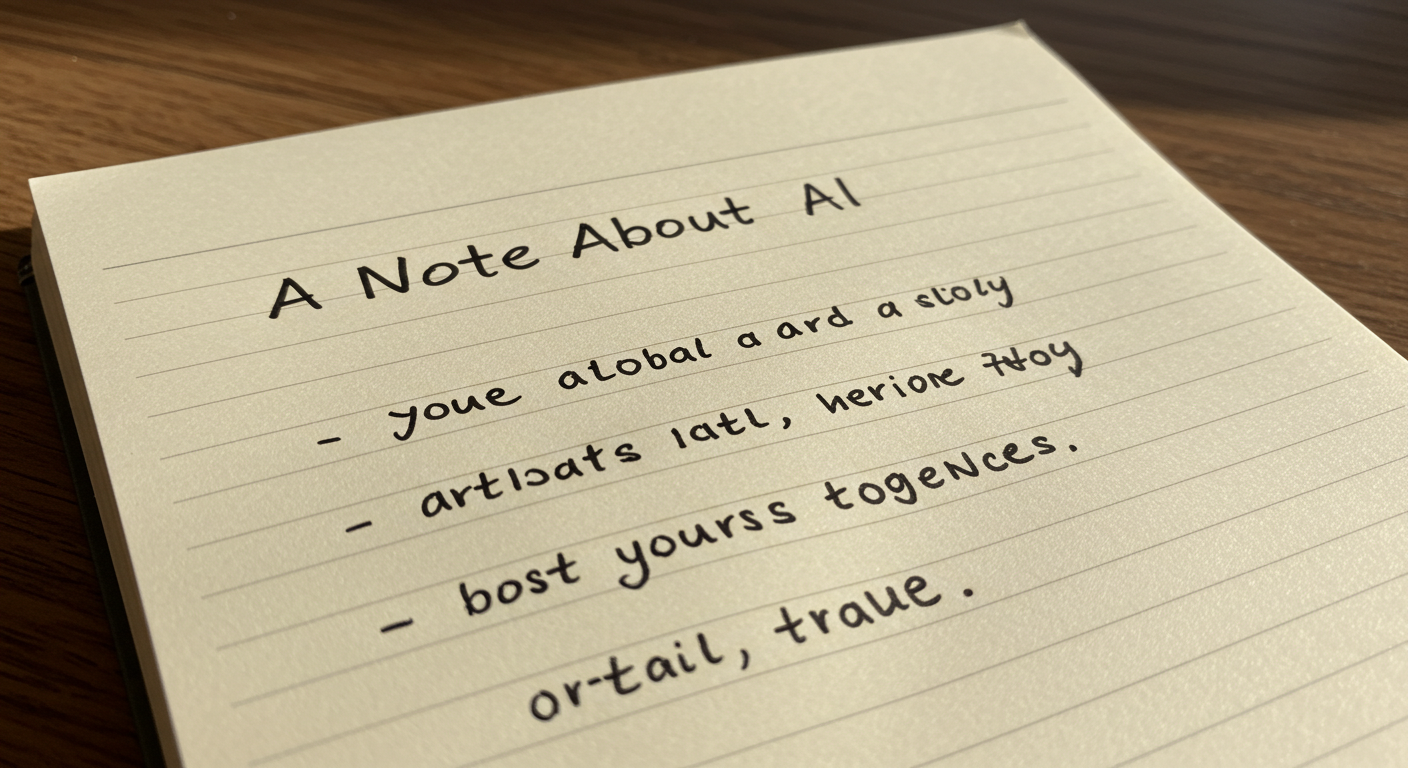 A Note About AI
- youe alobal a ard a stoly
- artloats latl, herione
- bost yourss togeNces.
or-tail, traue.